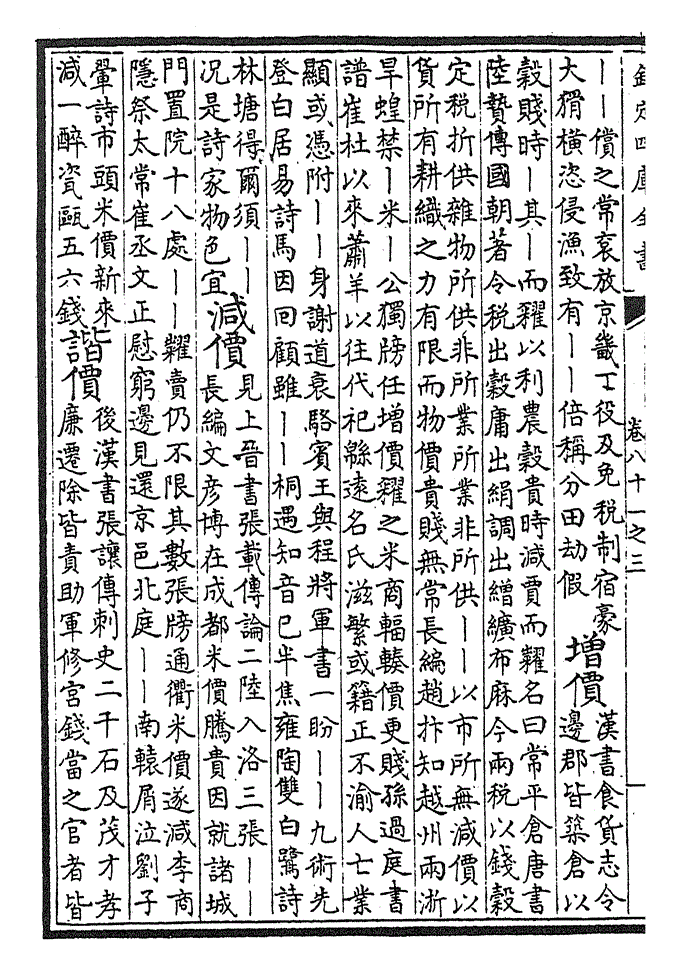 欽定四庫全書
卷八十一之三
｜｜償之常衮放京畿丁役及免税制宿豪
大猾横恣侵漁致有｜｜倍稱分田劫假
増價
漢書食貨志令
邊郡皆築倉以
榖賤時｜其｜而糴以利農榖貴時減賈而糶名曰常平倉唐書
陸贄傳國朝著令税出榖庸出絹調出繒纊布麻今兩税以錢榖
定税折供雜物所供非所業所業非所供｜｜以市所無減價以
貨所有耕織之力有限而物價貴賤無常長編趙抃知越州兩浙
旱蝗禁｜米｜公獨牓任增價糴之米商輻輳價更賤孫過庭書
譜崔杜以來蕭羊以往代祀緜遠名氏滋繁或籍正不渝人亡業
顯或憑附｜｜身謝道衰駱賓王與程將軍書一盼｜｜九術先
登白居易詩馬因回顧雖｜｜桐遇知音已半焦雍陶雙白鷺詩
林塘得爾須｜｜
况是詩家物色宜
減價
見上晉書張載傳論二陸入洛三張｜｜
長編文彦博在成都米價騰貴因就諸城
門置院十八處｜｜糶賣仍不限其數張牓通衢米價遂減李商
隱祭太常崔丞文正慰窮邊見還京邑北庭｜｜南轅屑泣劉子
翬詩市頭米價新來
減一醉瓷甌五六錢
諧價
後漢書張讓傳刺史二千石及茂才孝
廉遷除皆責助軍修宫錢當之官者皆